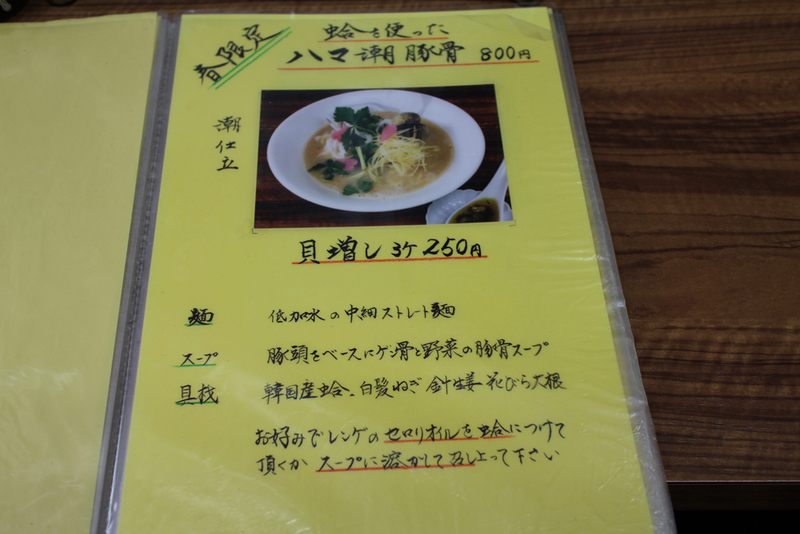 春限定
蛤を使った
ハマ潮豚骨 800円
潮仕立
貝増し 3ケ 250円
麺 低加水の中細ストレート麺
スープ 豚頭をベースにゲン骨と野菜の豚骨スープ
具材 韓国産蛤、白髪ねぎ 針生姜 花びら大根
お好みでレンゲのセロリオイルを蛤につけて
頂くか スープに溶かして召し上って下さい